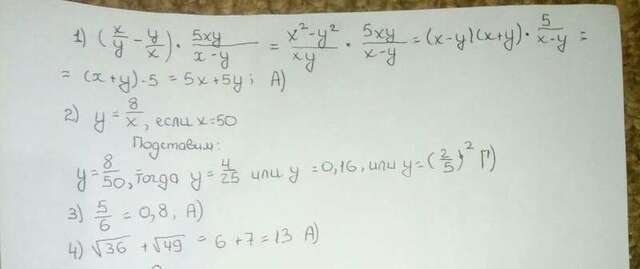 1) (x/y - y/x) · 5xy/(x-y) = (x²-y²)/(xy) · 5xy/(x-y) = (x-y)(x+y) · 5/(x-y) =
= (x+y)·5 = 5x+5y; А)
2) y = 8/x, если x=50
Подставим:
y = 8/50, тогда y = 4/25 или y = 0,16, или y = (2/5)² Г)
3) 5/6 = 0,8, А)
4) √36 + √49 = 6+7=13 А)